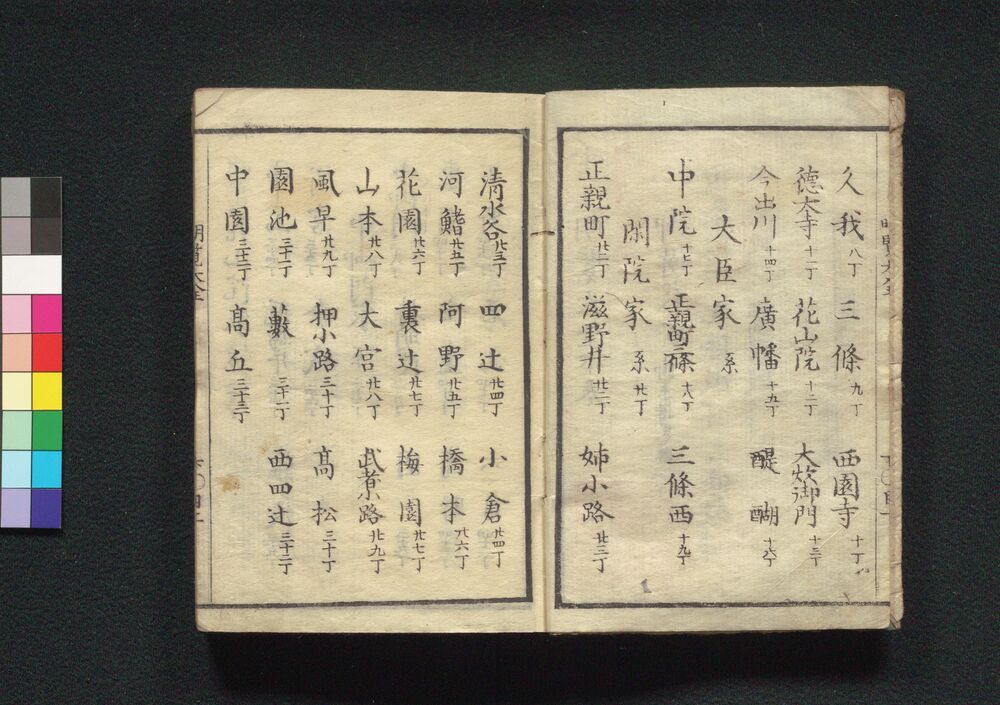 久我 八丁 三條 九丁 西園寺 十丁
徳大寺 十一丁 花山院 十二丁 大炊御門 十三丁
今出川 十四丁 廣幡 十五丁 醍醐 十六丁
大臣家 系
中院 十七丁 正親町三條 十八丁 三條西 十九丁
閑院家 系 廿丁
正親町 廿一丁 滋野井 廿二丁 姉小路 廿三丁
清水谷 廿三丁 四辻 廿四丁 小倉 廿四丁
河鰭 廿五丁 阿野 廿五丁 橋本 廿六丁
花園 廿六丁 裏辻 廿七丁 梅園 廿七丁
山本 廿八丁 大宮 廿八丁 武者小路 廿九丁
風早 廿九丁 押小路 三十丁 髙松 三十丁
園池 三十一丁 藪 三十一丁 西四辻 三十二丁
中園 三十二丁 髙丘 三十三丁
明覧大全